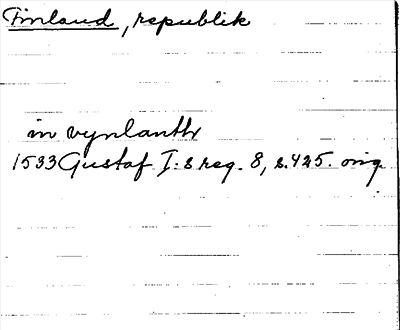 Finland, republik
in vynlanth
1533 Gustaf I:s reg. 8, s. 425. orig.